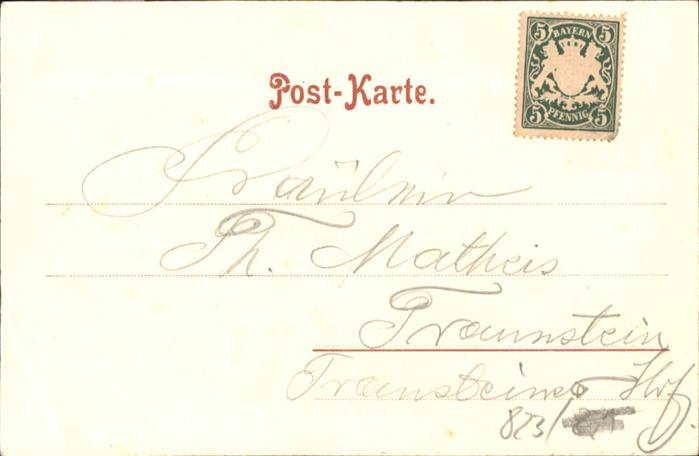 5 BAYERN 5
5 PFENNIG 5
Post-Karte.
Fräulein
Th. Matheis
Traunstein
Traunsteiner Hof.
823/